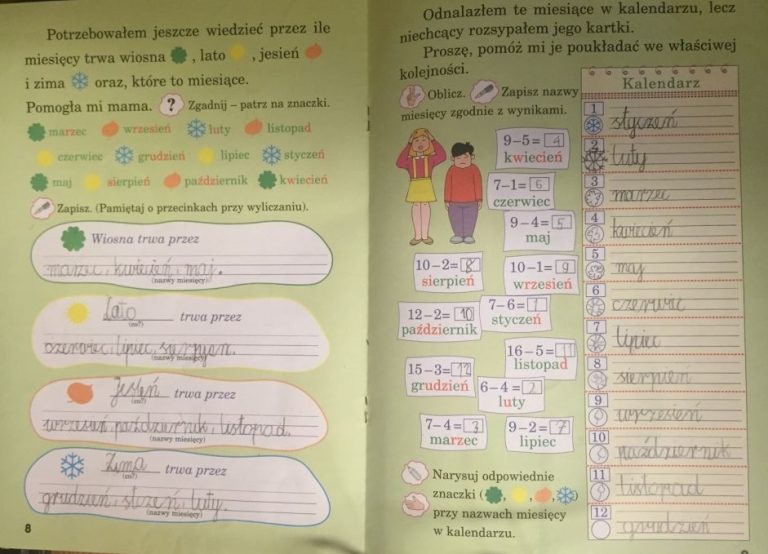 Potrzebowałem jeszcze wiedzieć przez ile
miesięcy trwa wiosna , lato , jesień
i zima oraz, które to miesiące.
Pomogła mi mama. ? Zgadnij – patrz na znaczki.
marzec wrzesień luty listopad
czerwiec grudzień lipiec styczeń
maj sierpień październik kwiecień
Zapisz. (Pamiętaj o przecinkach przy wyliczaniu).
Wiosna trwa przez
marzec, kwiecień, maj.
(nazwy miesięcy)
Lato trwa przez
(co?)
czerwiec, lipiec, sierpień.
(nazwy miesięcy)
Jesień trwa przez
(co?)
wrzesień październik, listopad.
(nazwy miesięcy)
Zima trwa przez
(co?)
grudzień, luty.
(nazwy miesięcy)
8
Odnalazłem te miesiące w kalendarzu, lecz
niechcący rozsypałem jego kartki.
Proszę, pomóż mi je poukładać we właściwej
kolejności.
Oblicz. Zapisz nazwy
miesięcy zgodnie z wynikami.
9–5= 4
kwiecień
7–1= 6
czerwiec
9–4= 5
maj
10–2= 8
sierpień
10–1= 9
wrzesień
12–2= 10
październik
7–6= 1
styczeń
16–5= 11
listopad
15–3= 12
grudzień
6–4= 2
luty
7–4= 3
marzec
9–2= 7
lipiec
Narysuj odpowiednie
znaczki ( , , , )
przy nazwach miesięcy
w kalendarzu.
Kalendarz
1 styczeń
2 luty
3 marzec
4 kwiecień
5 maj
6 czerwiec
7 lipiec
8 sierpień
9 wrzesień
10 październik
11 listopad
12 grudzień